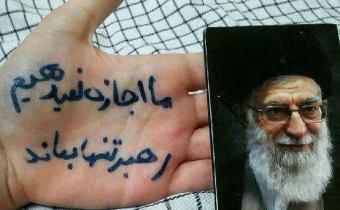 ما اجازه نمیدهیم
رهبر تنها بماند